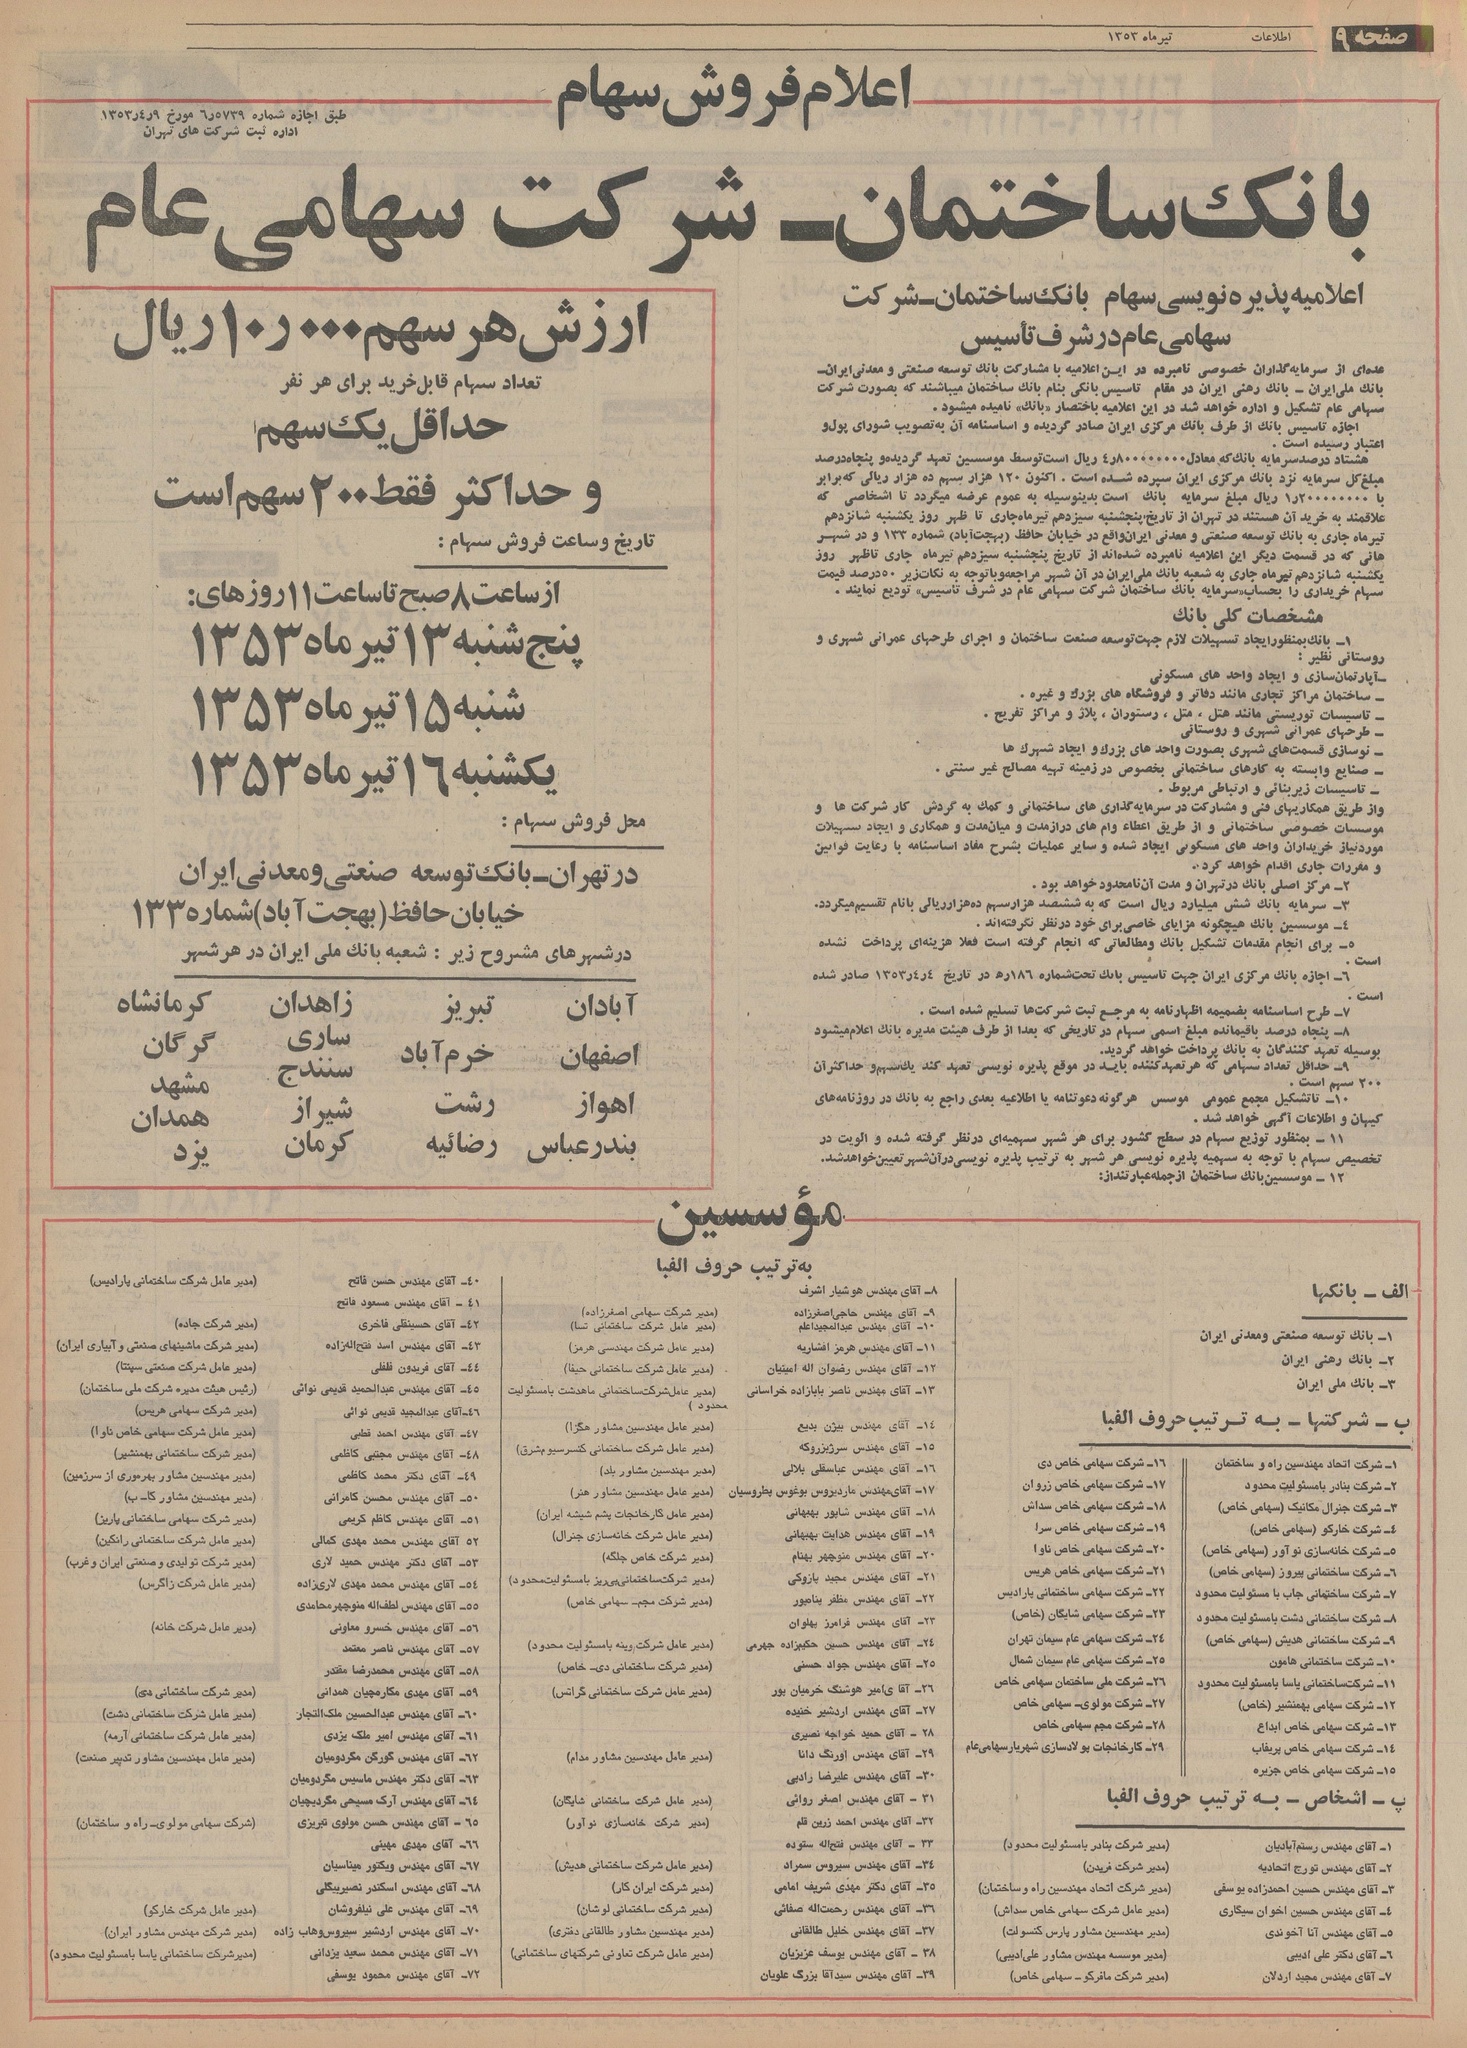 صفحه ۹
اطلاعات
تیر ماه ۱۳۵۳
اعلام فروش سهام
طبق اجازه شماره ۶٫۵۷۳۹ مورخ ۱۳۵۳٫۴٫۹
اداره ثبت شرکت های تهران
بانک ساختمان ـ شرکت سهامی عام
اعلامیه پذیره نویسی سهام بانک ساختمان ـ شرکت
سهامی عام در شرف تأسیس
عده‌ای از سرمایه‌گذاران خصوصی نامبرده در این اعلامیه با مشارکت بانک توسعه صنعتی و معدنی ایران ـ
بانک ملی ایران ـ بانک رهنی ایران در مقام تاسیس بانکی بنام بانک ساختمان میباشند که بصورت شرکت
سهامی عام تشکیل و اداره خواهد شد در این اعلامیه باختصار «بانک» نامیده میشود .
اجازه تاسیس بانک از طرف بانک مرکزی ایران صادر گردیده و اساسنامه آن به‌تصویب شورای پول و
اعتبار رسیده است .
هشتاد درصد سرمایه بانک که معادل ۴٫۸۰۰۰۰۰۰۰۰ ریال است توسط موسسین تعهد گردیده و پنجاه درصد
مبلغ کل سرمایه نزد بانک مرکزی ایران سپرده شده است . اکنون ۱۲۰ هزار سهم ده هزار ریالی که برابر
با ۱٫۲۰۰۰۰۰۰۰۰ ریال مبلغ سرمایه بانک است بدینوسیله به عموم عرضه میگردد تا اشخاصی که
علاقمند به خرید آن هستند در تهران از تاریخ پنجشنبه سیزدهم تیرماه جاری تا ظهر روز یکشنبه شانزدهم
تیرماه جاری به بانک توسعه صنعتی و معدنی ایران واقع در خیابان حافظ (بهجت‌آباد) شماره ۱۳۳ و در شهر
هائی که در قسمت دیگر این اعلامیه نامبرده شده‌اند از تاریخ پنجشنبه سیزدهم تیرماه جاری تاظهر روز
یکشنبه شانزدهم تیرماه جاری به شعبه بانک ملی ایران در آن شهر مراجعه و با توجه به نکات زیر ۵۰ درصد قیمت
سهام خریداری را بحساب «سرمایه بانک ساختمان شرکت سهامی عام در شرف تاسیس» تودیع نمایند .
مشخصات کلی بانک
۱ـ بانک بمنظور ایجاد تسهیلات لازم جهت توسعه صنعت ساختمان و اجرای طرحهای عمرانی شهری و
روستائی نظیر :
ـ آپارتمان‌سازی و ایجاد واحد های مسکونی
ـ ساختمان مراکز تجاری مانند دفاتر و فروشگاه های بزرگ و غیره .
ـ تاسیسات توریستی مانند هتل ، متل ، رستوران ، پلاژ و مراکز تفریح .
ـ طرحهای عمرانی شهری و روستائی
ـ نوسازی قسمت‌های شهری بصورت واحد های بزرگ و ایجاد شهرک ها
ـ صنایع وابسته به کارهای ساختمانی بخصوص در زمینه تهیه مصالح غیر سنتی .
ـ تاسیسات زیربنائی و ارتباطی مربوط .
و از طریق همکاریهای فنی و مشارکت در سرمایه‌گذاری های ساختمانی و کمک به گردش کار شرکت ها و
موسسات خصوصی ساختمانی و از طریق اعطاء وام های دراز مدت و میان‌مدت و همکاری و ایجاد تسهیلات
مورد نیاز خریداران واحد های مسکونی ایجاد شده و سایر عملیات بشرح مفاد اساسنامه با رعایت قوانین
و مقررات جاری اقدام خواهد کرد .
۲ـ مرکز اصلی بانک در تهران و مدت آن نامحدود خواهد بود .
۳ـ سرمایه بانک شش میلیارد ریال است که به ششصد هزار سهم ده هزار ریالی بانام تقسیم میگردد.
۴ـ موسسین بانک هیچگونه مزایای خاصی برای خود در نظر نگرفته‌اند .
۵ـ برای انجام مقدمات تشکیل بانک و مطالعاتی که انجام گرفته است فعلا هزینه‌ای پرداخت نشده
است .
۶ـ اجازه بانک مرکزی ایران جهت تاسیس بانک تحت شماره ۵٫۱۸۶ در تاریخ ۱۳۵۳٫۴٫۴ صادر شده
است .
۷ـ طرح اساسنامه بضمیمه اظهارنامه به مرجع ثبت شرکت‌ها تسلیم شده است .
۸ـ پنجاه درصد باقیمانده مبلغ اسمی سهام در تاریخی که بعدا از طرف هیئت مدیره بانک اعلام میشود
بوسیله تعهد کنندگان به بانک پرداخت خواهد گردید.
۹ـ حداقل تعداد سهامی که هر تعهدکننده باید در موقع پذیره نویسی تعهد کند یک سهم و حداکثر آن
۲۰۰ سهم است .
۱۰ـ تا تشکیل مجمع عمومی موسس هرگونه دعوتنامه یا اطلاعیه بعدی راجع به بانک در روزنامه‌های
کیهان و اطلاعات آگهی خواهد شد .
۱۱ ـ بمنظور توزیع سهام در سطح کشور برای هر شهر سهمیه‌ای در نظر گرفته شده و الویت در
تخصیص سهام با توجه به سهمیه پذیره نویسی هر شهر به ترتیب پذیره نویسی در آن شهر تعیین خواهد شد.
۱۲ ـ موسسین بانک ساختمان از جمله عبارتند از:
ارزش هر سهم ۱۰٫۰۰۰ ریال
تعداد سهام قابل خرید برای هر نفر
حداقل یک سهم
و حداکثر فقط ۲۰۰ سهم است
تاریخ و ساعت فروش سهام :
از ساعت ۸ صبح تا ساعت ۱۱ روزهای:
پنج شنبه ۱۳ تیر ماه ۱۳۵۳
شنبه ۱۵ تیر ماه ۱۳۵۳
یکشنبه ۱۶ تیر ماه ۱۳۵۳
محل فروش سهام :
در تهران ـ بانک توسعه صنعتی و معدنی ایران
خیابان حافظ (بهجت آباد) شماره ۱۳۳
در شهر های مشروح زیر : شعبه بانک ملی ایران در هر شهر
آبادان تبریز زاهدان کرمانشاه
اصفهان خرم‌آباد ساری گرگان
اهواز رشت سنندج مشهد
بندرعباس رضائیه شیراز همدان
کرمان یزد
مؤسسین
به‌ترتیب حروف الفبا
الف ـ بانکها
۱ـ بانک توسعه صنعتی و معدنی ایران
۲ـ بانک رهنی ایران
۳ـ بانک ملی ایران
ب ـ شرکتها ـ به ترتیب حروف الفبا
۱ـ شرکت اتحاد مهندسین راه و ساختمان
۲ـ شرکت بنادر بامسئولیت محدود
۳ـ شرکت جنرال مکانیک (سهامی خاص)
۴ـ شرکت خارکو (سهامی خاص)
۵ـ شرکت خانه‌سازی نو آور (سهامی خاص)
۶ـ شرکت ساختمانی پیروز (سهامی خاص)
۷ـ شرکت ساختمانی جاب با مسئولیت محدود
۸ـ شرکت ساختمانی دشت بامسئولیت محدود
۹ـ شرکت ساختمانی هدیش (سهامی خاص)
۱۰ـ شرکت ساختمانی هامون
۱۱ـ شرکت ساختمانی یاسا بامسئولیت محدود
۱۲ـ شرکت سهامی بهمنشیر (خاص)
۱۳ـ شرکت سهامی خاص ابداع
۱۴ـ شرکت سهامی خاص پریفاب
۱۵ـ شرکت سهامی خاص جزیره
۱۶ـ شرکت سهامی خاص دی
۱۷ـ شرکت سهامی خاص زروان
۱۸ـ شرکت سهامی خاص سداش
۱۹ـ شرکت سهامی خاص سرا
۲۰ـ شرکت سهامی خاص ناوا
۲۱ـ شرکت سهامی خاص هریس
۲۲ـ شرکت سهامی ساختمانی پارادیس
۲۳ـ شرکت سهامی شایگان (خاص)
۲۴ـ شرکت سهامی عام سیمان تهران
۲۵ـ شرکت سهامی عام سیمان شمال
۲۶ـ شرکت ملی ساختمان سهامی خاص
۲۷ـ شرکت مولوی ـ سهامی خاص
۲۸ـ شرکت مجم سهامی خاص
۲۹ـ کارخانجات پولادسازی شهریار سهامی عام
پ ـ اشخاص ـ به ترتیب حروف الفبا
۱ـ آقای مهندس رستم آبادیان (مدیر شرکت بنادر بامسئولیت محدود)
۲ـ آقای مهندس تورج اتحادیه (مدیر شرکت فریدن)
۳ـ آقای مهندس حسین احمدزاده یوسفی (مدیر شرکت اتحاد مهندسین راه و ساختمان)
۴ـ آقای مهندس حسین اخوان سیگاری (مدیر عامل شرکت سهامی خاص سداش)
۵ـ آقای مهندس آنا آخوندی (مدیر مهندسین مشاور پارس کنسولت)
۶ـ آقای دکتر علی ادیبی (مدیر موسسه مهندس مشاور علی ادیبی)
۷ـ آقای مهندس مجید اردلان (مدیر شرکت مافرکو ـ سهامی خاص)
۸ـ آقای مهندس هوشیار اشرف
۹ـ آقای مهندس حاجی اصغرزاده (مدیر شرکت سهامی اصغرزاده)
۱۰ـ آقای مهندس عبدالمجید اعلم (مدیر عامل شرکت ساختمانی تسا)
۱۱ـ آقای مهندس هرمز افشاریه (مدیر عامل شرکت مهندسی هرمز)
۱۲ـ آقای مهندس رضوان اله امینیان (مدیر عامل شرکت ساختمانی حیفا)
۱۳ـ آقای مهندس ناصر بابازاده خراسانی (مدیر عامل شرکت ساختمانی ماهدشت بامسئولیت
محدود )
۱۴ـ آقای مهندس بیژن بدیع (مدیر عامل مهندسین مشاور هگزا)
۱۵ـ آقای مهندس سرژبزروکه (مدیر عامل شرکت ساختمانی کنسرسیوم شرق)
۱۶ـ آقای مهندس عباسقلی بلالی (مدیر مهندسین مشاور بلد)
۱۷ـ آقای مهندس ماردیروس بوغوس پطروسیان (مدیر عامل مهندسین مشاور هنر)
۱۸ـ آقای مهندس شاپور بهبهانی (مدیر عامل کارخانجات پشم شیشه ایران)
۱۹ـ آقای مهندس هدایت بهبهانی (مدیر عامل شرکت خانه‌سازی جنرال)
۲۰ـ آقای مهندس منوچهر بهنام (مدیر شرکت خاص جلگه)
۲۱ـ آقای مهندس مجید بازوکی (مدیر شرکت ساختمانی پی‌ریز بامسئولیت محدود)
۲۲ـ آقای مهندس مظفر پناهپور (مدیر شرکت مجم ـ سهامی خاص)
۲۳ـ آقای مهندس فرامرز پهلوان
۲۴ـ آقای مهندس حسین حکیم‌زاده جهرمی (مدیر عامل شرکت وینه بامسئولیت محدود)
۲۵ـ آقای مهندس جواد حسنی (مدیر شرکت ساختمانی دی ـ خاص)
۲۶ـ آقای امیر هوشنگ خرمیان پور (مدیر عامل شرکت ساختمانی گرانس)
۲۷ـ آقای مهندس اردشیر خنیده
۲۸ ـ آقای حمید خواجه نصیری
۲۹ـ آقای مهندس اورنگ دانا (مدیر عامل مهندسین مشاور مدام)
۳۰ـ آقای مهندس علیرضا رادپی
۳۱ ـ آقای مهندس اصغر روائی (مدیر عامل شرکت ساختمانی شایگان)
۳۲ـ آقای مهندس احمد زرین قلم (مدیر شرکت خانه‌سازی نو آور)
۳۳ ـ آقای مهندس فتح‌اله ستوده
۳۴ـ آقای مهندس سیروس سمراد (مدیر عامل شرکت ساختمانی هدیش)
۳۵ـ آقای دکتر مهدی شریف امامی (مدیر شرکت ایران کار)
۳۶ـ آقای مهندس رحمت‌اله صفائی (مدیر شرکت ساختمانی لوشان)
۳۷ـ آقای مهندس خلیل طالقانی (مدیر مهندسین مشاور طالقانی دفتری)
۳۸ ـ آقای مهندس یوسف عزیزیان (مدیر عامل شرکت تعاونی شرکتهای ساختمانی)
۳۹ـ آقای مهندس سیدآقا بزرگ علویان
۴۰ـ آقای مهندس حسن فاتح (مدیر عامل شرکت ساختمانی پارادیس)
۴۱ ـ آقای مهندس مسعود فاتح
۴۲ـ آقای حسینقلی فاخری (مدیر شرکت جاده)
۴۳ـ آقای مهندس اسد فتح‌اله‌زاده (مدیر شرکت ماشینهای صنعتی و آبیاری ایران)
۴۴ـ آقای فریدون فلفلی (مدیر عامل شرکت صنعتی سپنتا)
۴۵ـ آقای مهندس عبدالحمید قدیمی نوائی (رئیس هیئت مدیره شرکت ملی ساختمان)
۴۶ـ آقای عبدالمجید قدیمی نوائی (مدیر شرکت سهامی هریس)
۴۷ـ آقای مهندس احمد قطبی (مدیر عامل شرکت سهامی خاص ناوا)
۴۸ـ آقای مهندس مجتبی کاظمی (مدیر شرکت ساختمانی بهمنشیر)
۴۹ـ آقای دکتر محمد کاظمی (مدیر مهندسین مشاور بهره‌وری از سرزمین)
۵۰ـ آقای مهندس محسن کامرانی (مدیر مهندسین مشاور کا ـ ب)
۵۱ـ آقای مهندس کاظم کریمی (مدیر شرکت سهامی ساختمانی پاریز)
۵۲ آقای مهندس محمد مهدی کمالی (مدیر عامل شرکت ساختمانی رانگین)
۵۳ـ آقای دکتر مهندس حمید لاری (مدیر شرکت تولیدی و صنعتی ایران و غرب)
۵۴ـ آقای مهندس محمد مهدی لاری‌زاده (مدیر عامل شرکت زاگرس)
۵۵ـ آقای مهندس لطف‌اله منوچهر محامدی
۵۶ـ آقای مهندس خسرو معاونی (مدیر عامل شرکت خانه)
۵۷ـ آقای مهندس ناصر معتمد
۵۸ـ آقای مهندس محمدرضا مقتدر
۵۹ـ آقای مهدی مکارمچیان همدانی (مدیر شرکت ساختمانی دی)
۶۰ـ آقای مهندس عبدالحسین ملک‌التجار (مدیر عامل شرکت ساختمانی دشت)
۶۱ـ آقای مهندس امیر ملک یزدی (مدیر عامل شرکت ساختمانی آرمه)
۶۲ـ آقای مهندس گورگن مگردومیان (مدیر عامل مهندسین مشاور تدبیر صنعت)
۶۳ـ آقای دکتر مهندس ماسیس مگردومیان
۶۴ـ آقای مهندس آرک مسیحی مگردیچیان
۶۵ ـ آقای مهندس حسن مولوی تبریزی (شرکت سهامی مولوی ـ راه و ساختمان)
۶۶ـ آقای مهدی مهینی
۶۷ـ آقای مهندس ویکتور میناسیان
۶۸ـ آقای مهندس اسکندر نصیربیگلی
۶۹ـ آقای مهندس علی نیلفروشان (مدیر عامل شرکت خارکو)
۷۰ـ آقای مهندس اردشیر سیروس وهاب زاده (مدیر شرکت مهندس مشاور ایران)
۷۱ـ آقای مهندس محمد سعید یزدانی (مدیر شرکت ساختمانی یاسا بامسئولیت محدود)
۷۲ـ آقای مهندس محمود یوسفی